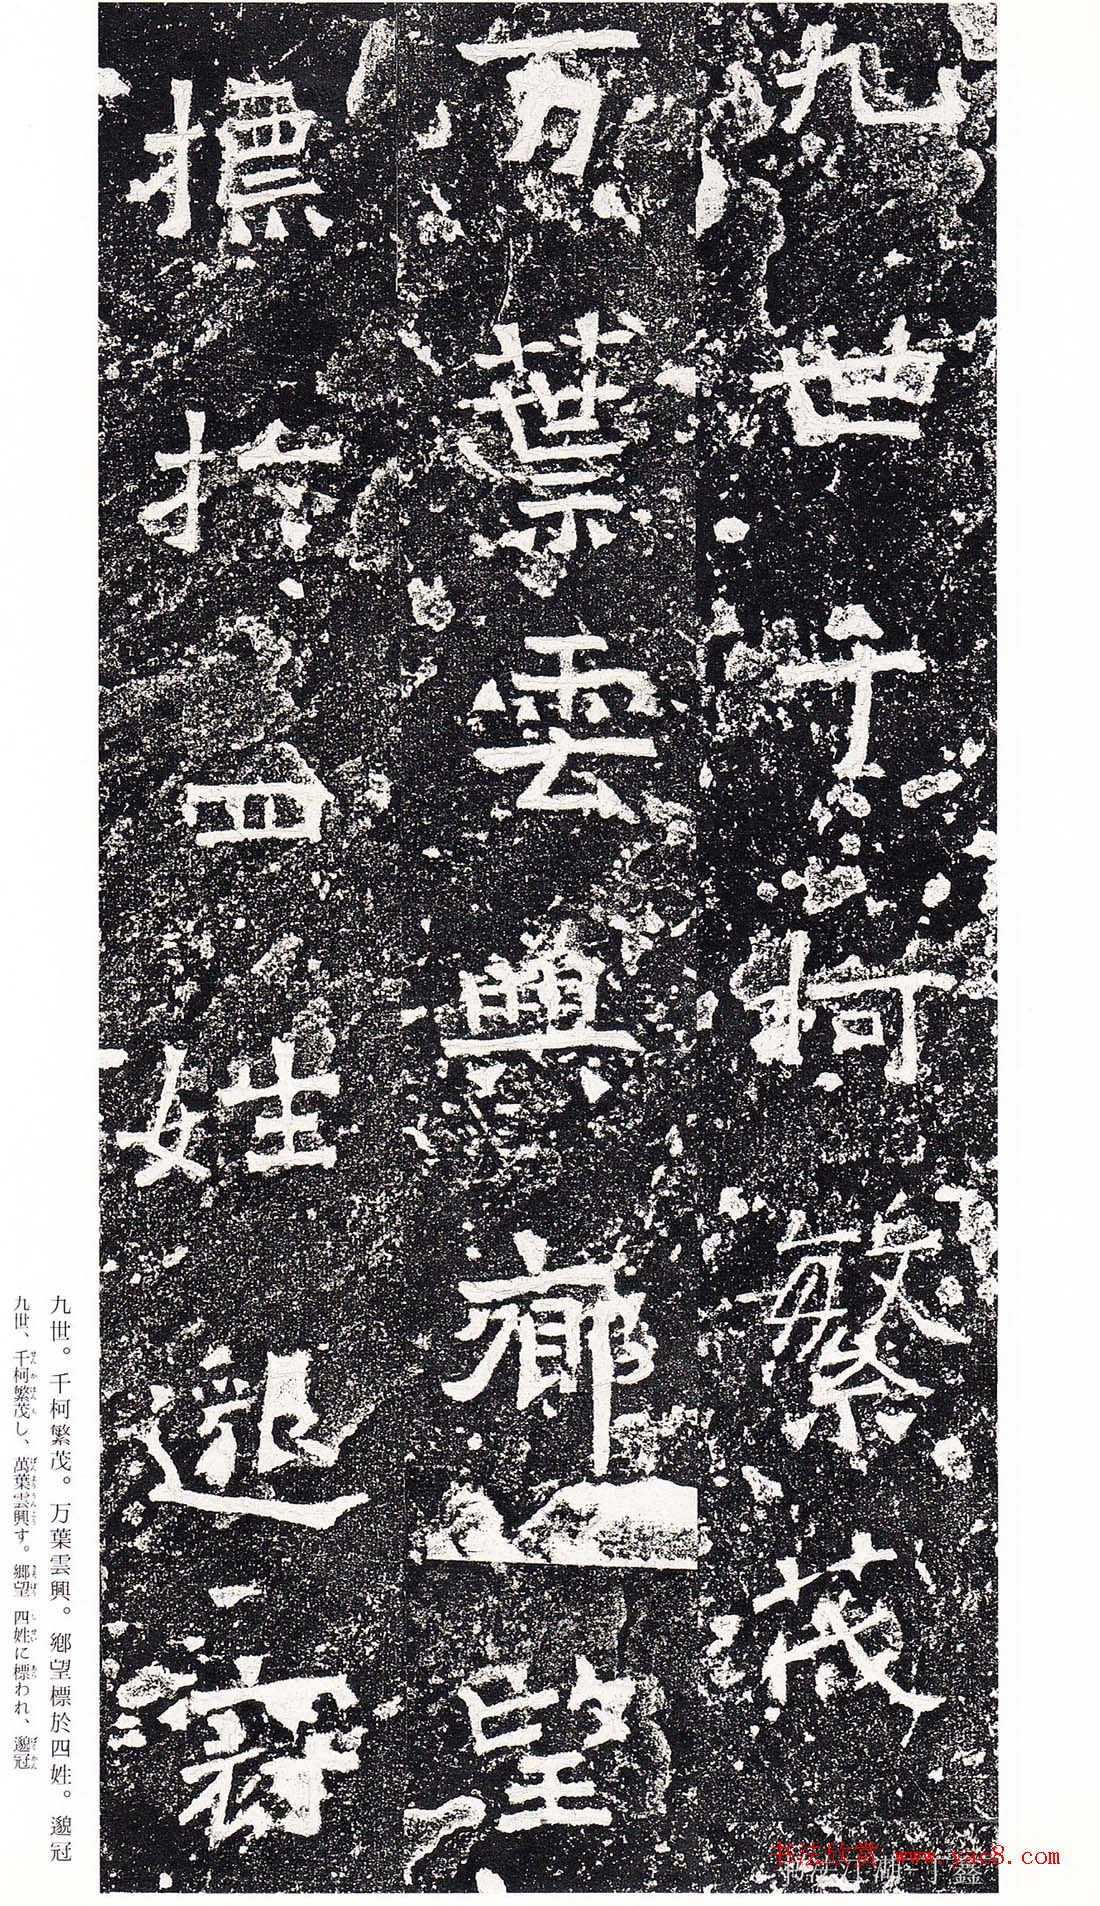 九世千柯繁茂
万葉雲興鄕望
標於四姓邈冠
九世。千柯繁茂。万葉雲興。鄕望標於四姓。邈冠
九世、千柯繁茂し、萬葉雲興す。鄕望 四姓に標われ、邈冠
书法欣赏 www.yac8.com